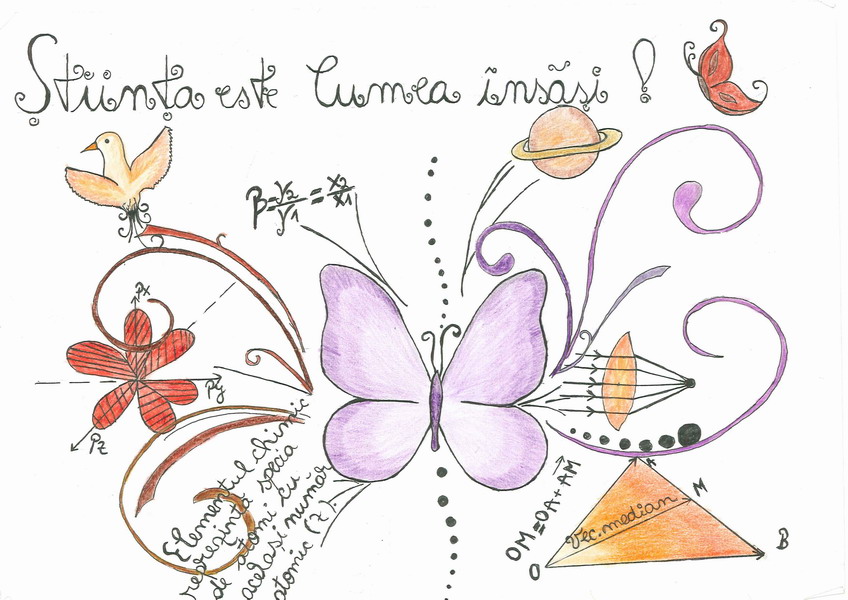 Știința este lumea însăși !
β=y2/y1=x2/x1
px
py
pz
Elementul chimic
reprezintă specia
de atomi cu
același număr
atomic (z).
OM=OA+AM
A
M
Vec. median
O
B